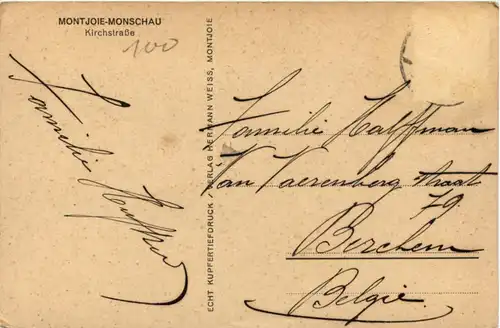 MONTJOIE-MONSCHAU
Kirchstraße
100
Familie
ECHT KUPFERTIEFDRUCK / VERLAG HERMANN WEISS, MONTJOIE
Familie Halffman
Van Vaerenberg straat
79.
Berchem
Belgie